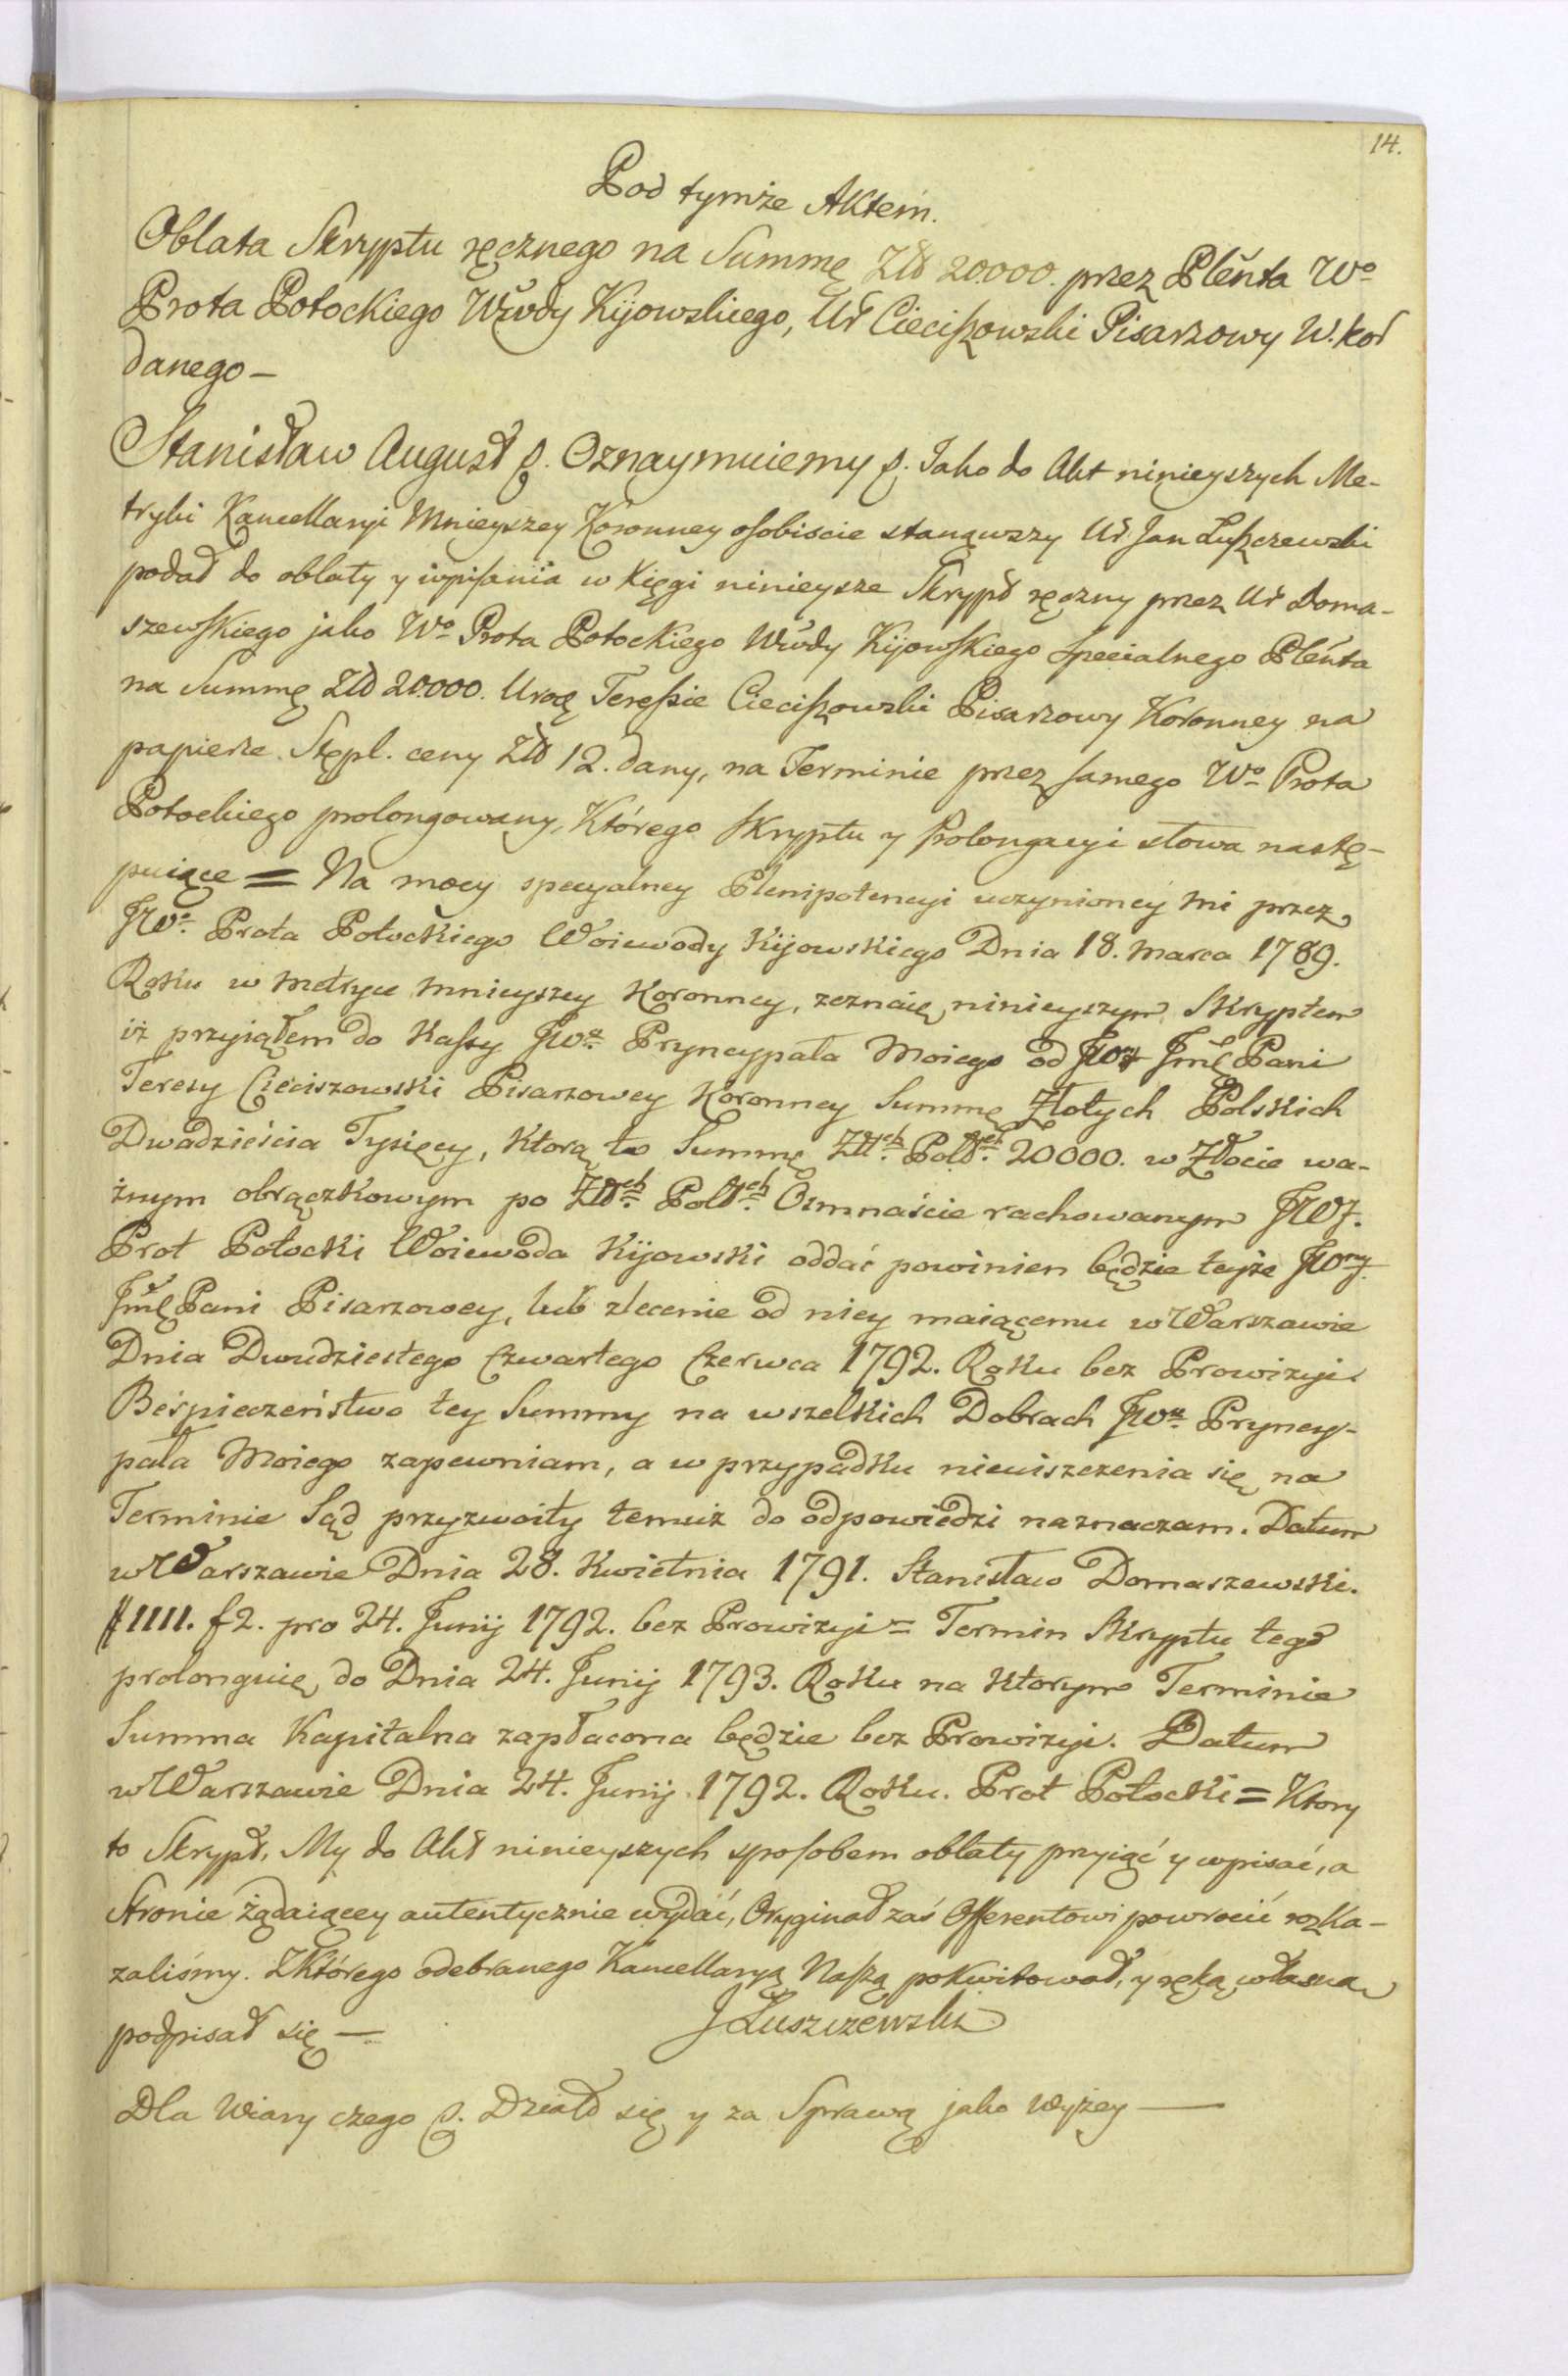 14.
Pod tymże Aktem.
Oblata Skryptu ręcznego na Summę Złł 20000. przez Pleńta Wo
Prota Potockiego Wwdy Kijowskiego, Ur Ciecißowski Pisarzowy W. kor
danego —
Stanisław August p. Oznaymuiemy p. Jako do Akt ninieyszych Me-
tryki Kancellaryi Mnieyszey Koronney osobiscie stanąwszy Ur Jan Lußczewski
podał do oblaty y wpisania w Xięgi ninieysze Skrypt ręczny przez Ur Doma-
szewskiego jako Wo Prota Potockiego Wwdy Kijowskiego specialnego Pleńta
na Summę Złł 20.000. Urod Tereßie Ciecißowski Pisarzowy Koronney na
papierze Stępl. ceny Złł 12. dany, na Terminie przez samego Wo Prota
Potockiego prolongowany, Którego Skryptu y Prolongacyi słowa nastę-
puiące = Na mocy specyalney Plenipotencyi uczynioney mi przez
JWo Prota Potockiego Woiewody Kijowskiego Dnia 18. Marca 1789.
Roku w Metryce Mnieyszey Koronney, zeznaię ninieyszym Skryptem
iż przyiąłem do Kassy JWo Pryncypała Moiego od JWey Jmć Pani
Teresy Cieciszowski Pisarzowey Koronney Summę Złotych Polskich
Dwadzieścia Tysięcy, Ktorą to Summę Złłch Polłch 20000. w Złocie wa-
żnym obrączkowym po Złłch Polłch Osmnaście rachowanym JWJ.
Prot Potocki Woiewoda Kijowski oddać powinien będzie teyże JWey
Jmć Pani Pisarzowey, lub zlecenie od niey maiącemu w Warszawie
Dnia Dwudziestego Czwartego Czerwca 1792. Roku bez Prowizyi.
Beśpieczeństwo tey Summy na wszelkich Dobrach JWo Pryncy-
pała Moiego zapewniam, a w przypadku nieuiszczenia się na
Terminie Sąd przyzwoity temuż do odpowiedzi naznaczam. Datum
w Warszawie Dnia 28. Kwietnia 1791. Stanisław Domaszewski.
# 1111. f 2. pro 24. Junij 1792. bez Prowizyi = Termin Skryptu tego
prolonguię do Dnia 24. Junij 1793. Roku na ktorym Terminie
Summa Kapitalna zapłacona będzie bez Prowizyi. Datum
w Warszawie Dnia 24. Junij 1792. Roku. Prot Potocki = Ktory
to Skrypt, My do Akt ninieyszych sposobem oblaty przyiąć y wpisać, a
Stronie żądaiącey autentycznie wydać, Oryginał zaś Offerentowi powrócić rozka-
zaliśmy. Z Którego odebranego Kancellaryą Naszą pokwitował, y ręką własną
podpisał się — J Luszczewski
Dla Wiary czego p. Działo się y za Sprawą jako wyżey —